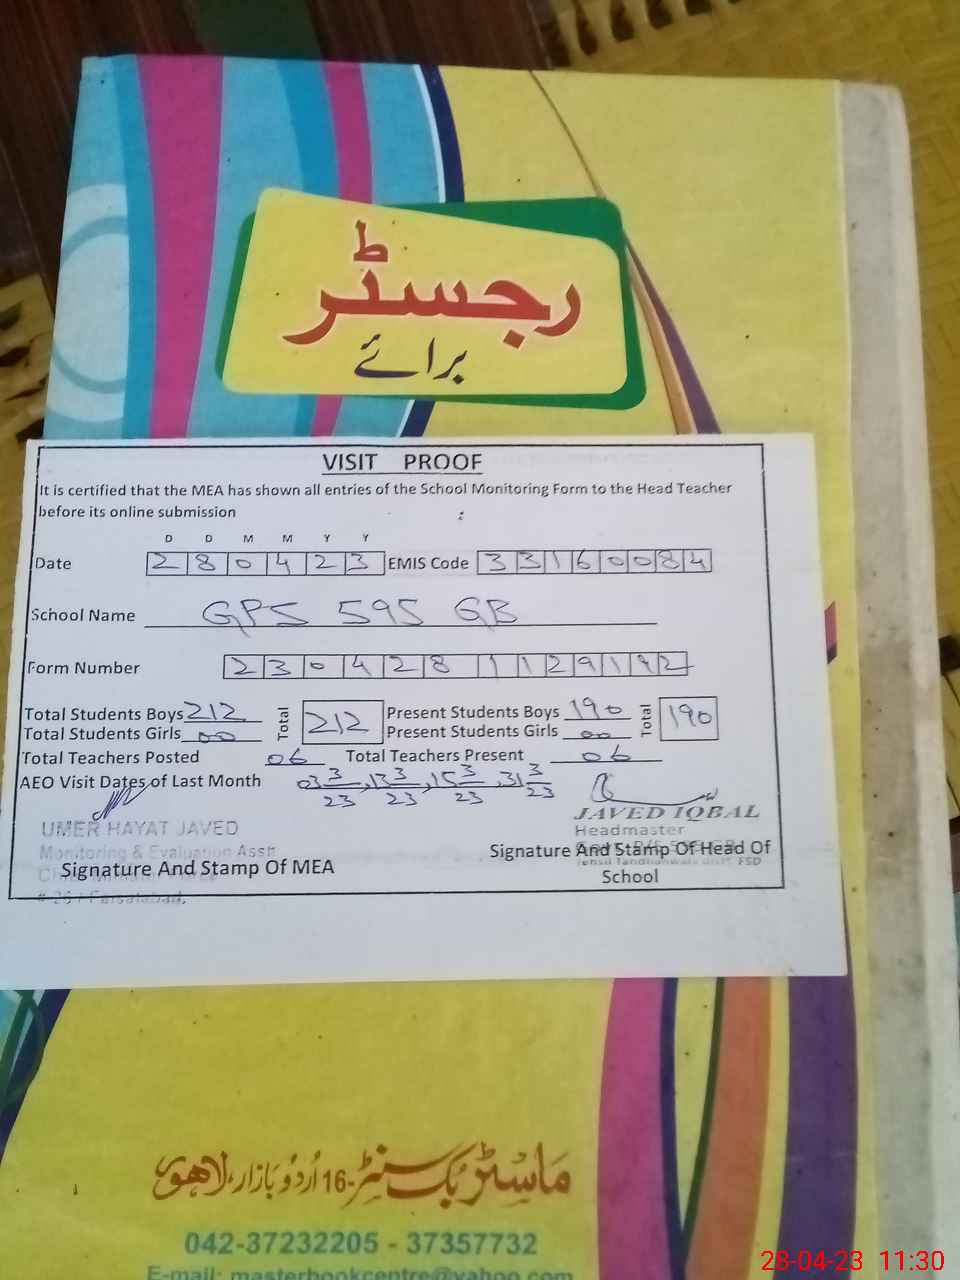 رجسٹر
برائے
VISIT PROOF
It is certified that the MEA has shown all entries of the School Monitoring Form to the Head Teacher
before its online submission
D D M M Y Y
Date 280423 EMIS Code 33160084
School Name GPS 595 GB
Form Number 230428 1129192
Total Students Boys 212 Total 212 Present Students Boys 190 Total 190
Total Students Girls 00 Present Students Girls 00
Total Teachers Posted 06 Total Teachers Present 06
AEO Visit Dates of Last Month 03 3/23, 13 3/23, 15 3/23, 31 3/23
UMER HAYAT JAVED
Monitoring & Evaluation Asstt
Signature And Stamp Of MEA
JAVED IQBAL
Headmaster
Signature And Stamp Of Head Of
School
ماسٹر بک سنٹر-16 اُردُو بازار، لاهور
042-37232205 - 37357732
E-mail: masterbookcentre@yahoo.com
28-04-23 11:30